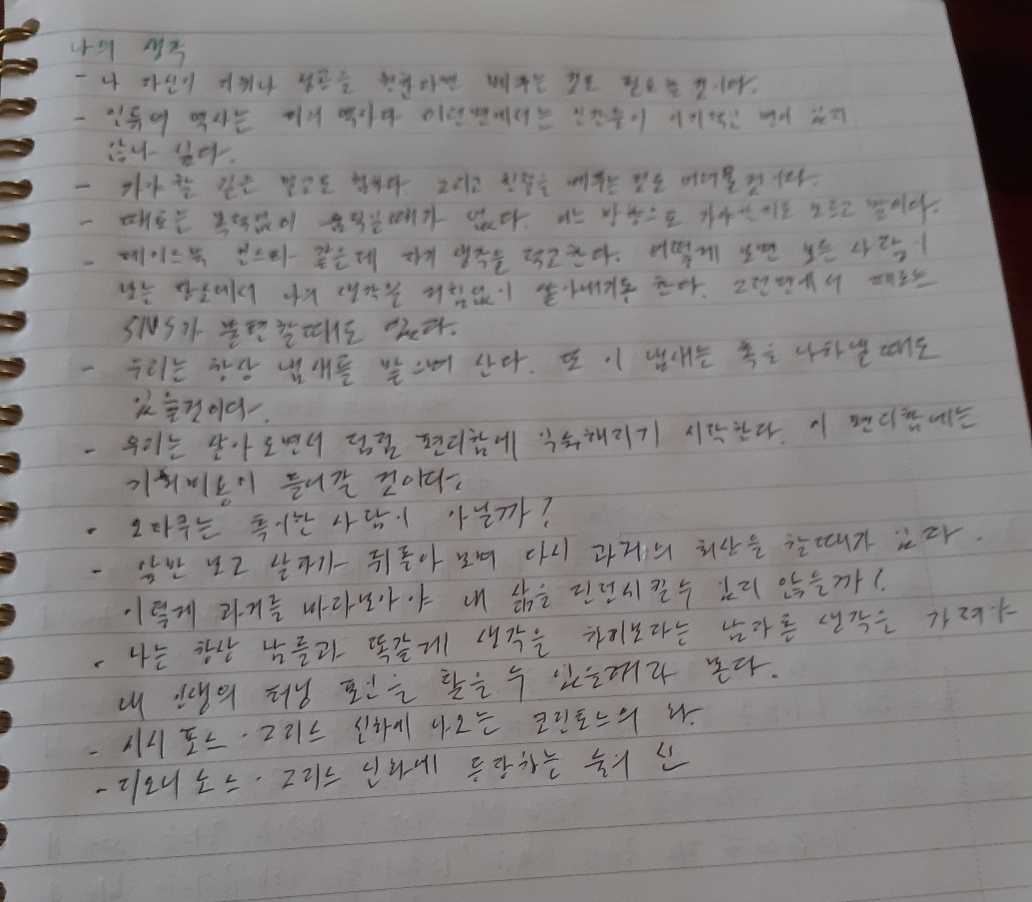 나의 생각
- 나 자신이 성공을 원한다면 베푸는 것도 필요할 것이다.
- 인류의 역사는 이런면에서는 인간들이 이기적인 면이 있지
않나 싶다.
- 그리고 친절을 베푸는 것은 어려울것이다.
- 때로는 목적없이 움직일때가 있다. 어느 방향으로 모르고 말이다.
- 페이스북 인스타 같은데 생각을 적고한다. 어떻게 보면 모든 사람이
보는 나의 생각을 거침없이 쏟아내기도 한다. 그런면에서 때로는
SNS가 불편할때도 있다.
- 우리는 항상 냄새를 맡으며 산다. 또 이 냄새는 독을 나타낼때도
있을것이다.
- 우리는 살아오면서 점점 편리함에 익숙해지기 시작한다. 이 편리함에는
기회비용이 들어갈 것이다.
- 오타쿠는 특이한 사람이 아닐까?
- 앞만 보고 살다가 뒤돌아 보며 다시 과거의 회상을 할때가 있다.
이렇게 과거를 바라보아야 내 삶을 진전시킬수 있지 않을까?
- 나는 항상 남들과 똑같게 생각을 하기보다는 남다른 생각을 가져야
내 인생의 터닝 포인트를 찾을 수 있을꺼라 본다.
- 시시포스 · 그리스 신화에 나오는 코린토스의 왕.
- 디오니소스 · 그리스 신화에 등장하는 술의 신